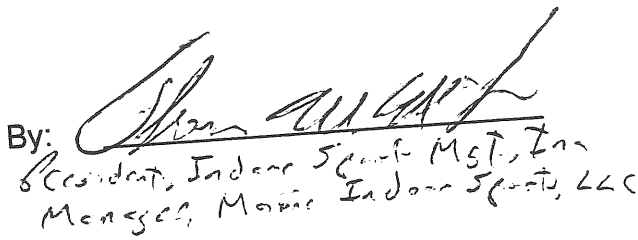 By:
President, Indoor Sports Mgt., Inc
Manager, Indoor Sports, LLC